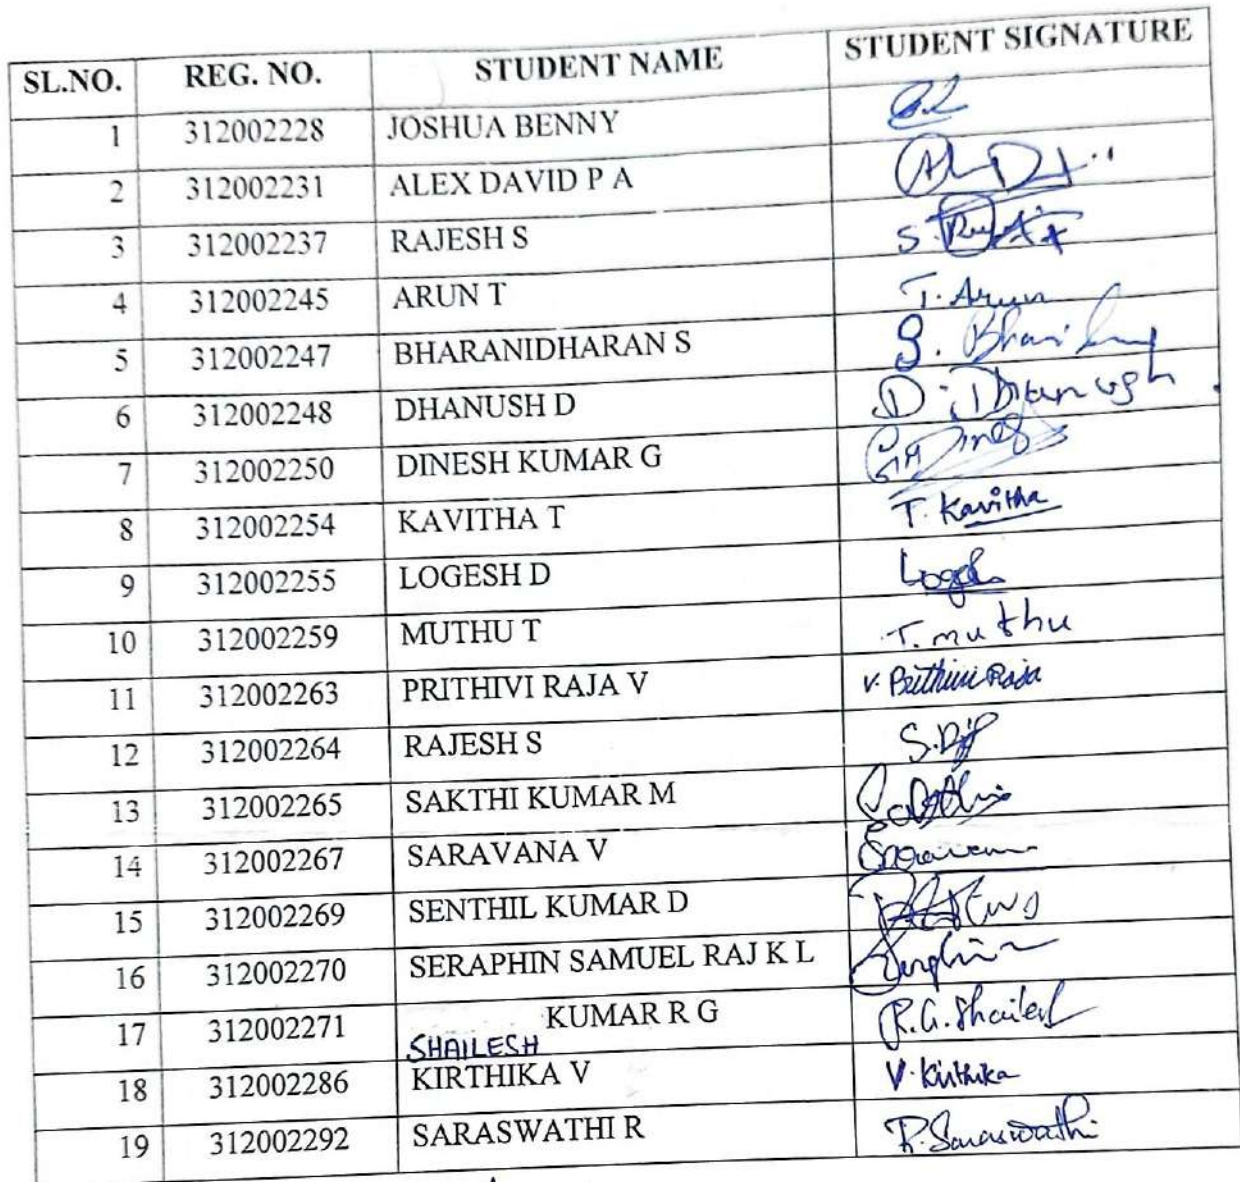 SL.NO. REG. NO. STUDENT NAME STUDENT SIGNATURE
1 312002228 JOSHUA BENNY
2 312002231 ALEX DAVID P A
3 312002237 RAJESH S S.
4 312002245 ARUN T T. Arun
5 312002247 BHARANIDHARAN S S.
6 312002248 DHANUSH D D. Dhanush
7 312002250 DINESH KUMAR G
8 312002254 KAVITHA T T. Kavitha
9 312002255 LOGESH D Logesh
10 312002259 MUTHU T T. muthu
11 312002263 PRITHIVI RAJA V V. Prithivi Raja
12 312002264 RAJESH S S.
13 312002265 SAKTHI KUMAR M
14 312002267 SARAVANA V
15 312002269 SENTHIL KUMAR D
16 312002270 SERAPHIN SAMUEL RAJ K L
17 312002271 SHAILESH KUMAR R G R.G. Shailesh
18 312002286 KIRTHIKA V V. Kirthika
19 312002292 SARASWATHI R R. Saraswathi